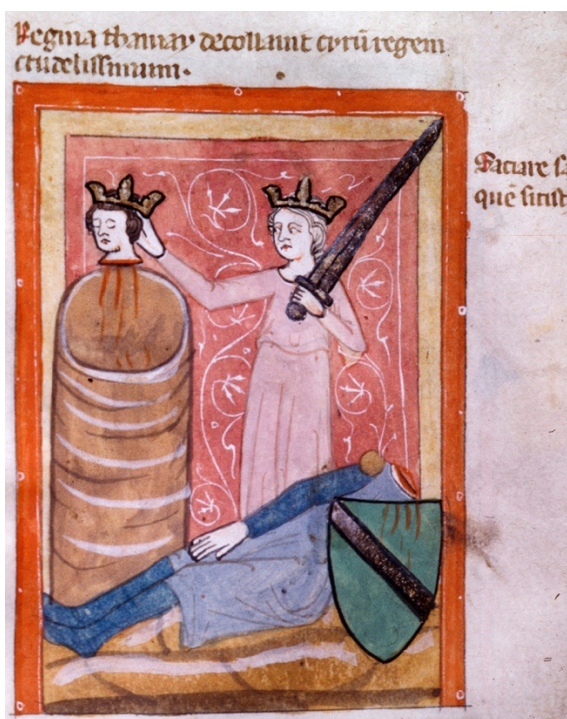 Regina thamay decollavit cyrū regem
crudelissimum.
Saciare sa
quē sitist